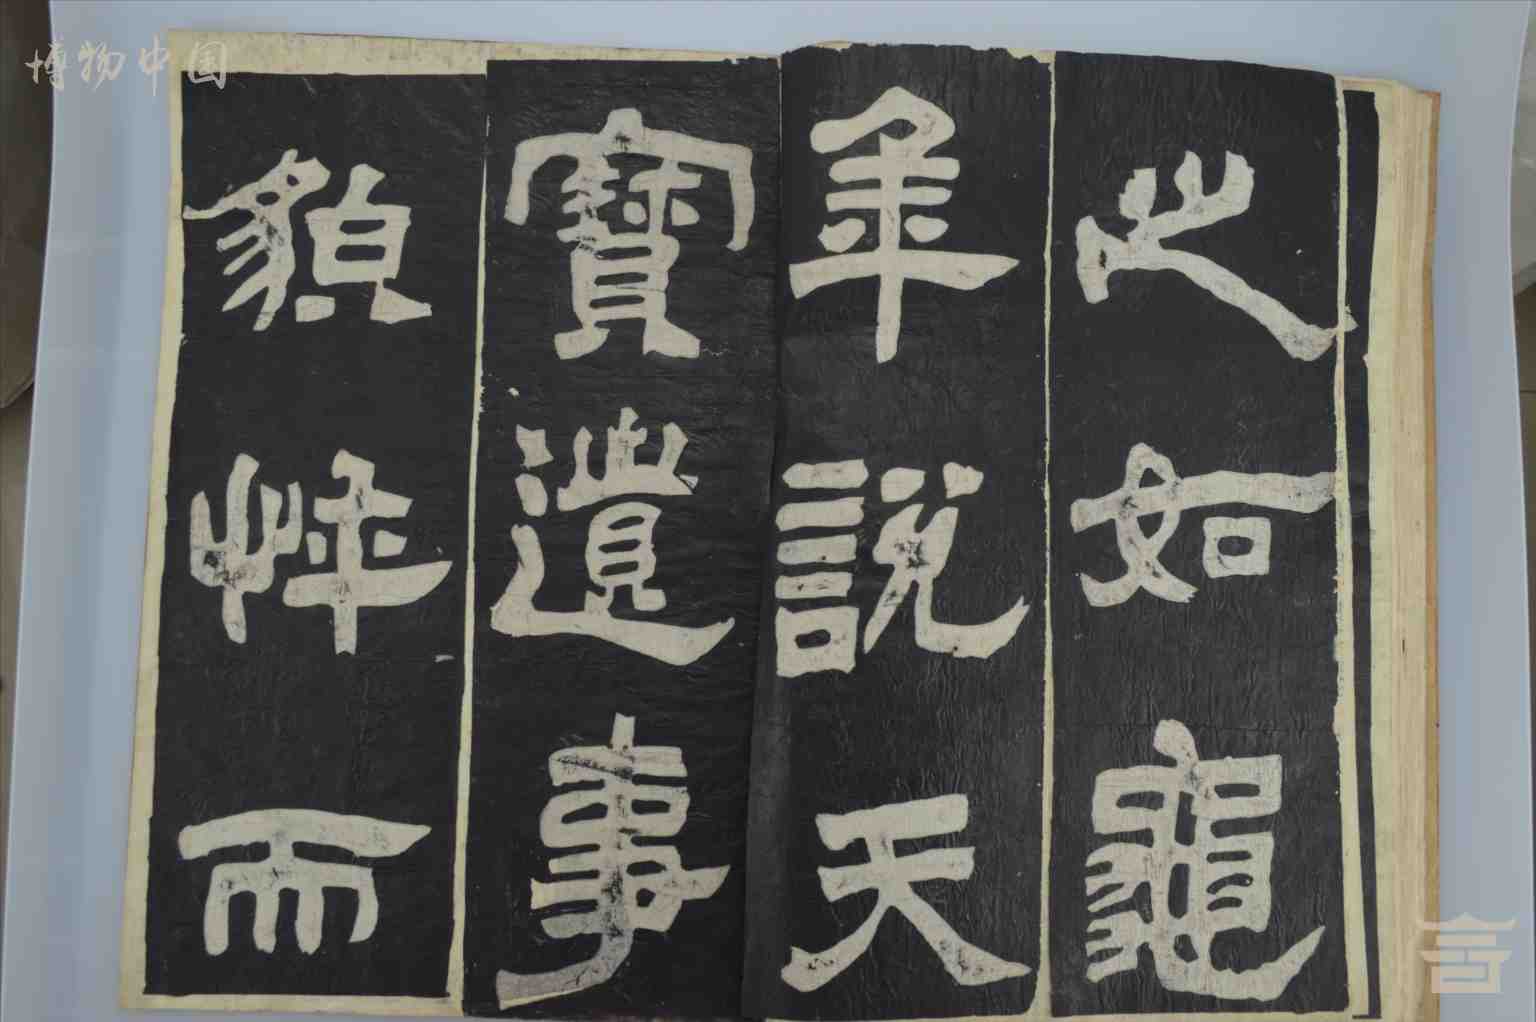 博物中国
之如龜
年說天
寶遺事
貌悴而